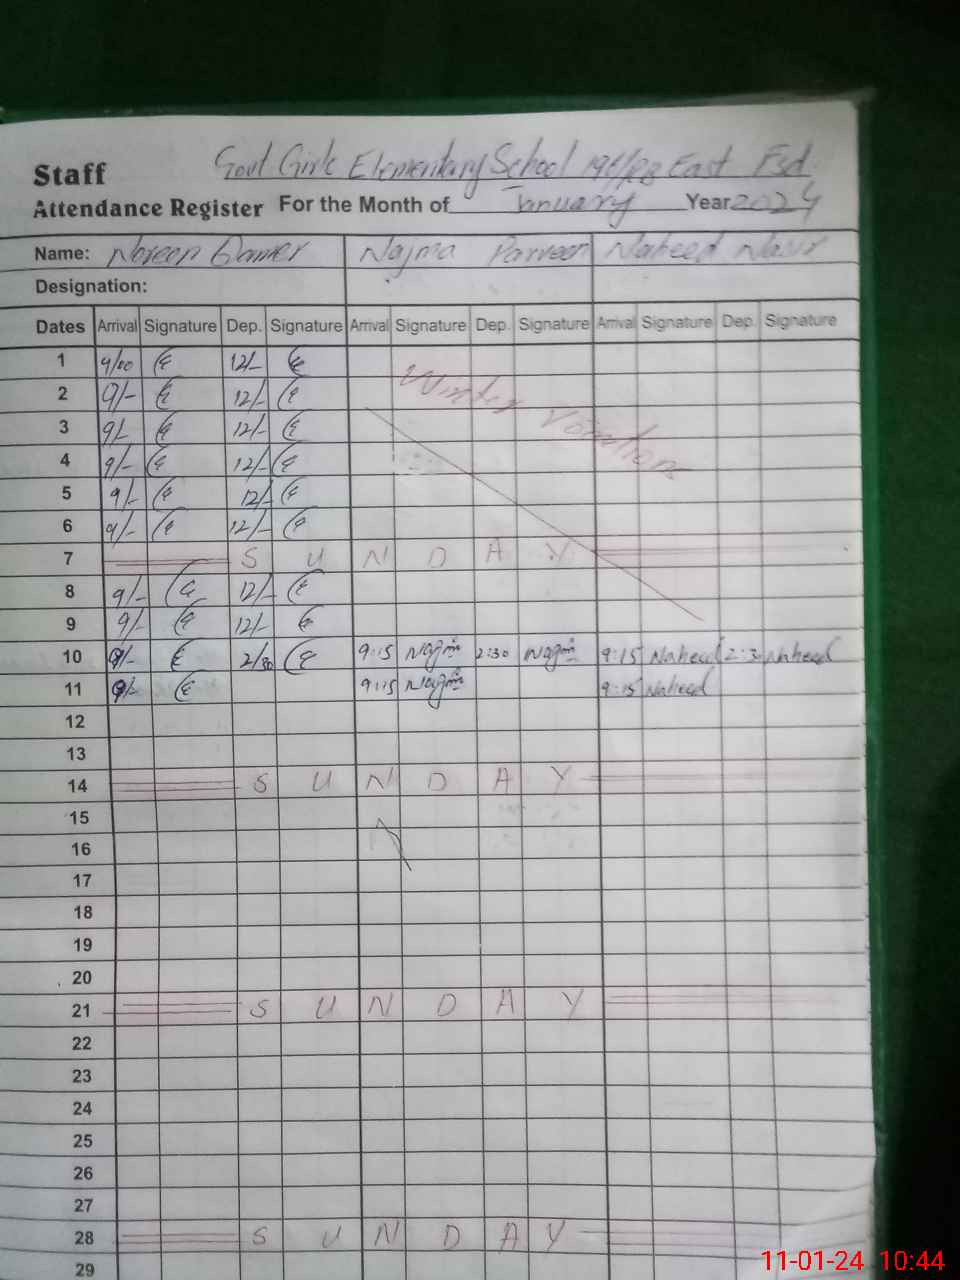 Govt Girls Elementary School 196/RB East Fsd.
Staff
Attendance Register For the Month of January Year 2024
Name: Noreen Qamer Najma Parveen Naheed Nasir
Designation:
Dates Arrival Signature Dep. Signature Arrival Signature Dep. Signature Arrival Signature Dep. Signature
1 9/00 12/-
2 9/- 12/-
Winter Vacations
3 9/- 12/-
4 9/- 12/-
5 9/- 12/-
6 9/- 12/-
7 S U N D A Y
8 9/- 12/-
9 9/- 12/-
10 9/- 2/30 9:15 Najma 2:30 Najma 9:15 Naheed 2:3 Naheed
11 9/- 9:15 Najma 9:15 Naheed
12
13
14 S U N D A Y
15
16
17
18
19
20
21 S U N D A Y
22
23
24
25
26
27
28 S U N D A Y
29
11-01-24 10:44